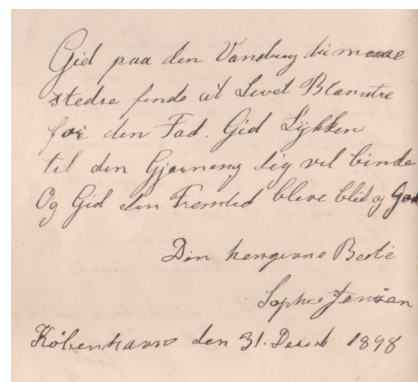 Gid paa den Vandring du maae
stedse finde at Livet Blomstre
for den Fod. Gid Lykken
til den Gjerning dig vel binde
Og Gid din Fremtid bleve blid og God
Din hengivne Berta
Sophie Jensen
København den 31. Decemb 1898